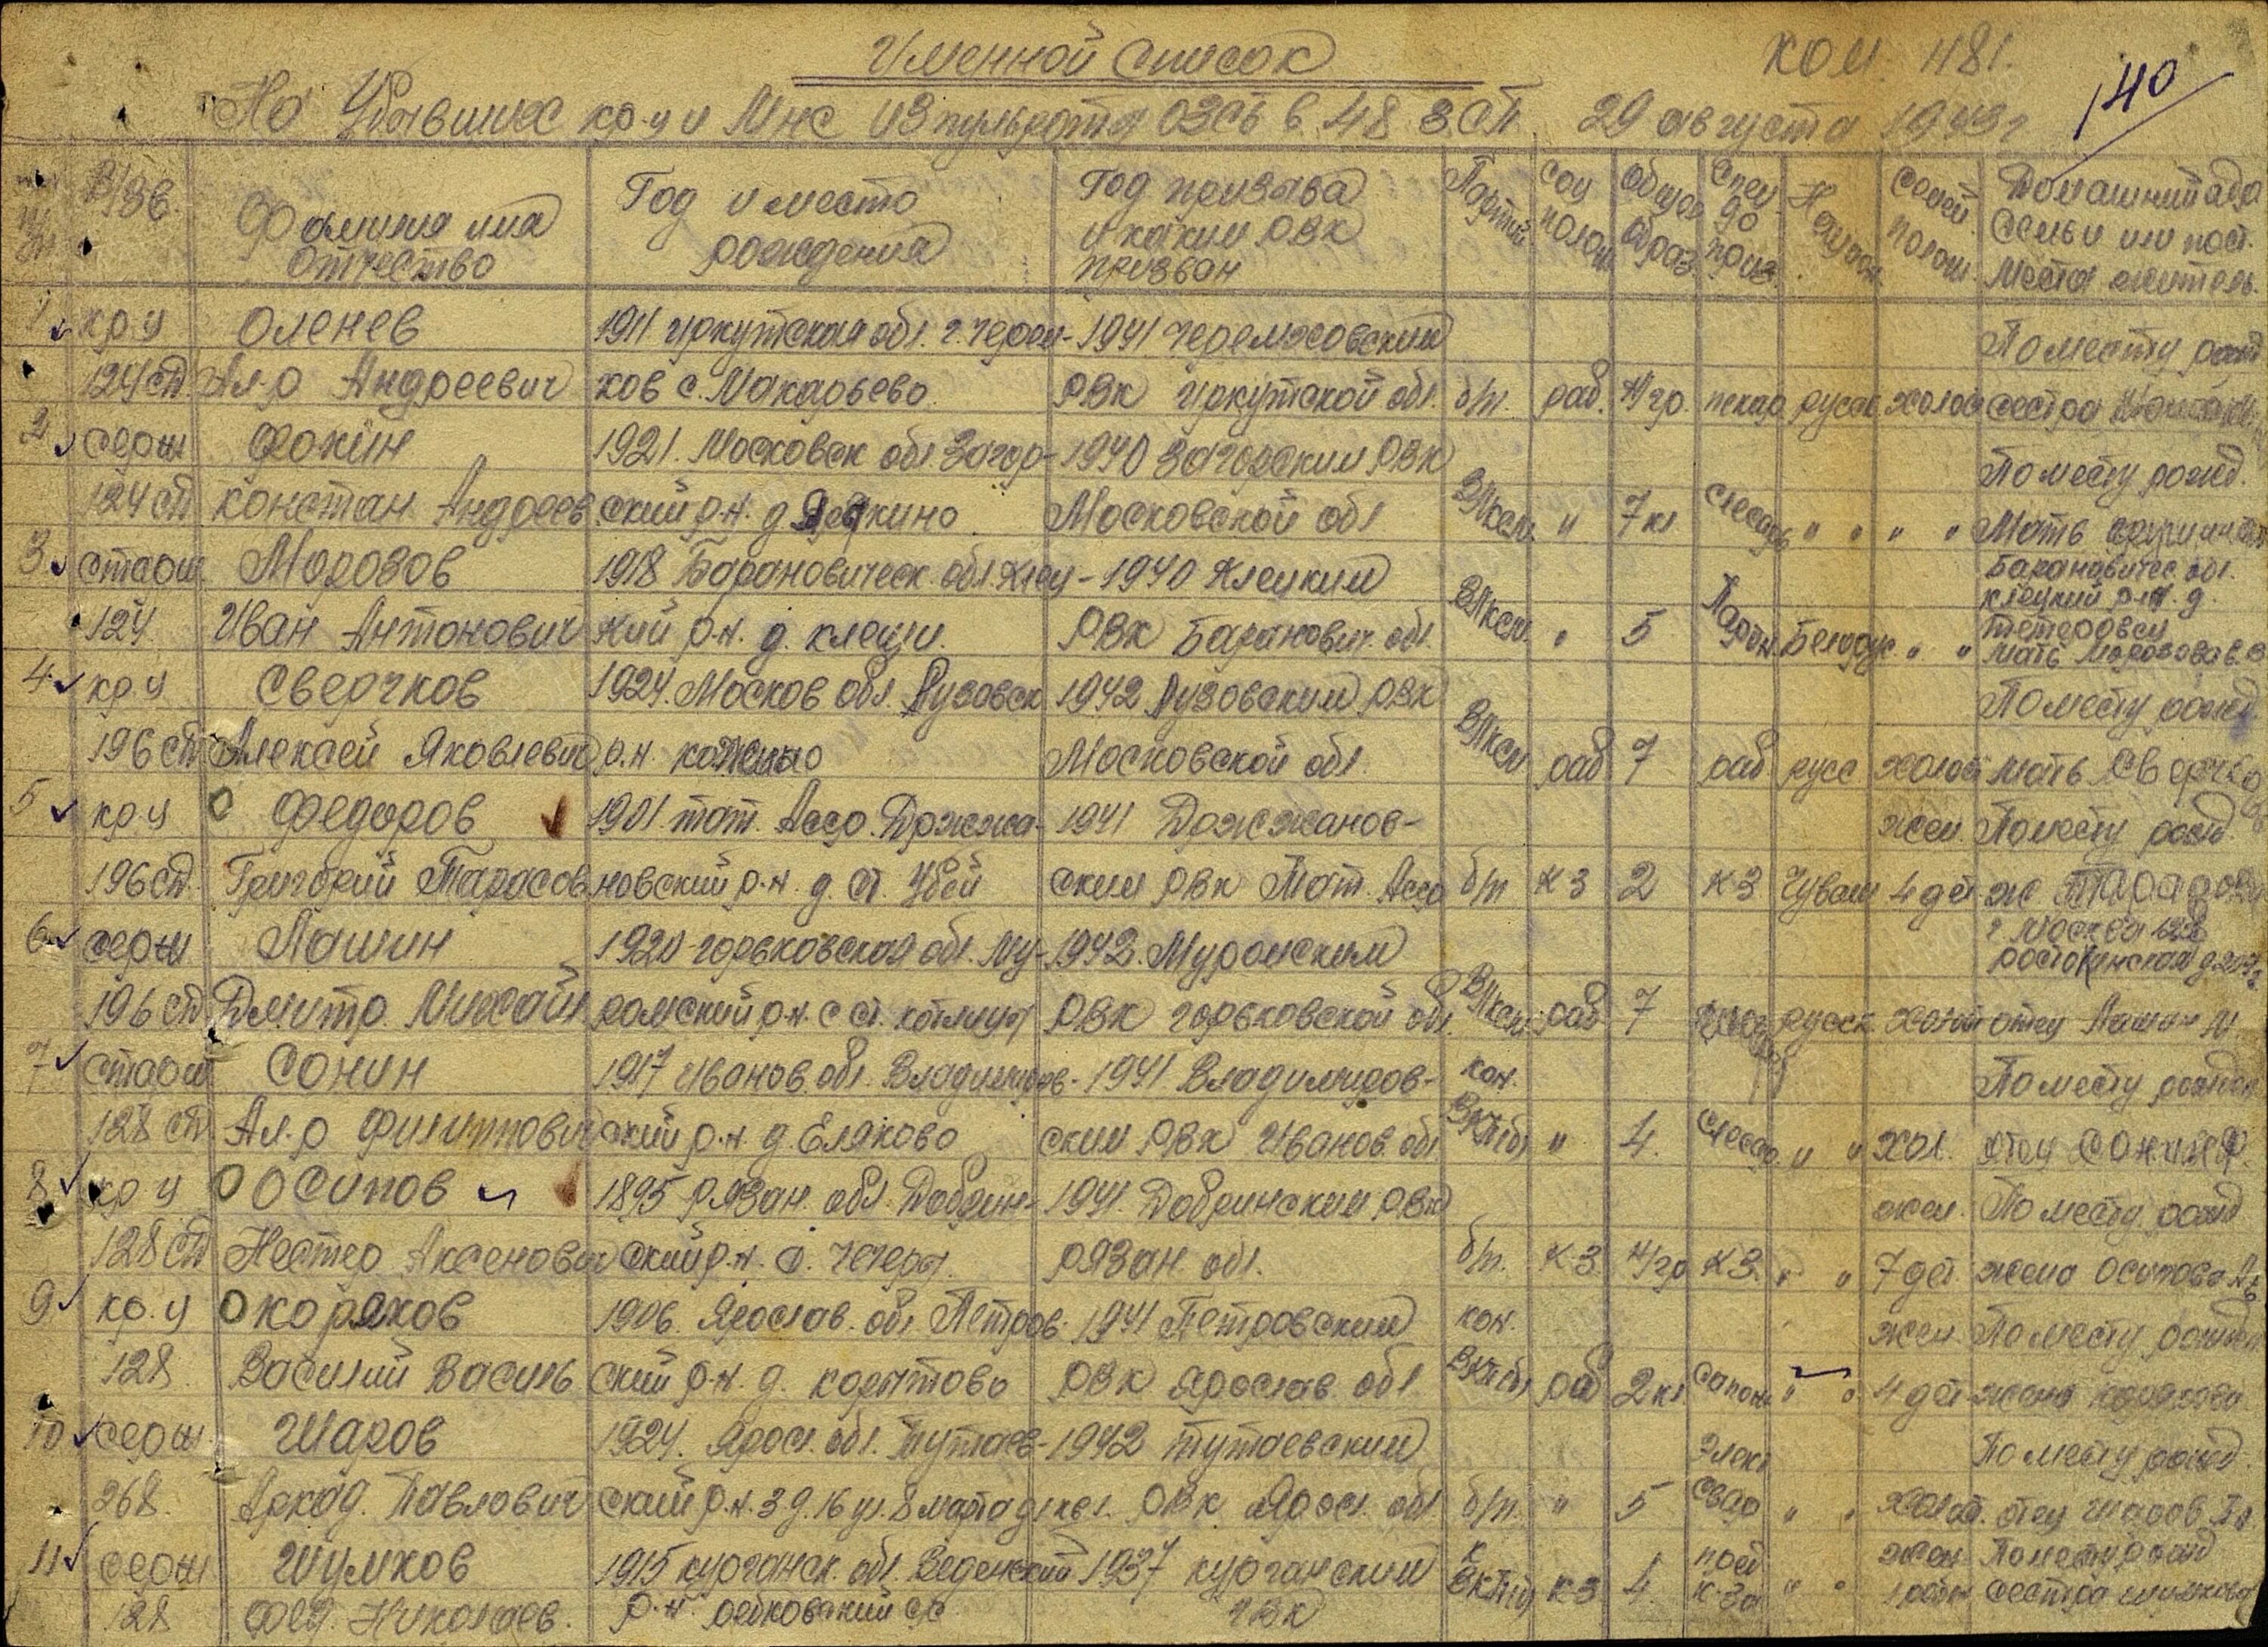 Именной список
ком. 481.
140
На Убывших кр-ц и Мнс из пульроты ОЗСБ в 48 З.СП. 29 августа 1943 г
В/Зв. Фамилия имя отчество Год и место рождения Год призыва и каким РВК призван Партий. соц полож. общее образ. Спец до приз. Национ. семей. полож. Домашний адр семьи или пост. места житель.
1 кр-ц Оленев 1911 Иркутская обл. г. Черем- 1941 Черемховским По месту рожд
124 сп Ал-р Андреевич хов с. Макарьево. РВК Иркутской обл. б/п. раб. н/гр. пекар русск холос сестра
2 серж Фокин 1921. Московск обл Загор- 1940 Загорским РВК По месту рожд.
124 сп Констан. Андреев ский р-н. д. Московской обл ВЛксм " 7 кл слесарь " " " " Мать
3 старш Морозов 1918 Барановическ. обл. Клец- 1940 Клецким Барановичес. обл. Клецкий р-н. д.
124 Иван Антонович кий р-н. д. клещи. РВК Баранович. обл. ВЛксм. " 5 Белорус " " мать Морозова
4 кр-ц Сверчков 1924. Москов обл. Рузовск 1942 Рузовским РВК По месту рожд
196 сп Алексей Яковлевич р.н. Московской обл. ВЛксм раб 7 раб русс холост мать Сверчко
5 кр-ц Федоров 1901. тат. Асср. Дрожжа- 1941 Дрожжанов- жен. По месту рожд.
196 сп. Григорий Тарасов новский р.н. д. ст. Убей ским РВК Тат. Асср б/п к-з 2 к-з Чуваш 4 дет ж
6 серж Пашин 1920 горьковская обл. Му- 1942. Муромским г. Москва
196 сп Дмитр. Михайл ромский р.н. с ст. РВК горьковской обл. ВЛксм раб 7 русск холост отец Пашин М
7 старш Сонин 1917 Иванов. обл. Владимиров- 1941 Владимиров- кан. По месту рожден
128 сп Ал-р Филиппович ский р-н д. Еляково ским РВК Иванов. обл ВКПб) " 4. слесар " " хол. отец Сонин Ф.
8 кр-ц Осипов 1895 Рязан. обл. Добрин- 1941. Добринским РВК жен. По месту рожд
128 сп Нестер Аксенович ский р.н. с. Рязан. обл. б/п. к-з н/гр к-з. " " 7 дет. жена Осипова
9 кр-ц Коряков 1906. Ярослав. обл Петров- 1941 Петровским кан. жен. По месту рожден
128. Василий Василь ский р-н. д. Корытово РВК Ярослав. обл ВКПб) раб 2 кл сапож " " 4 дет жена Корякова
10 серж. Шаров 1924. Яросл. обл. Тутаев- 1942 Тутаевским элект По месту рожд.
268. Аркад. Павлович ский р.н. 3 д. 16 ул. 8 марта РВК Яросл. обл б/п. " 5 свар " " холост. отец Шаров
11 серж Шумков 1915 курганск. обл. 1937 курганским к жен По месту рожд
128 Фед. Николаев. р-н. с/с ГВК ВКПб) к-з 4 к-за " " сестра